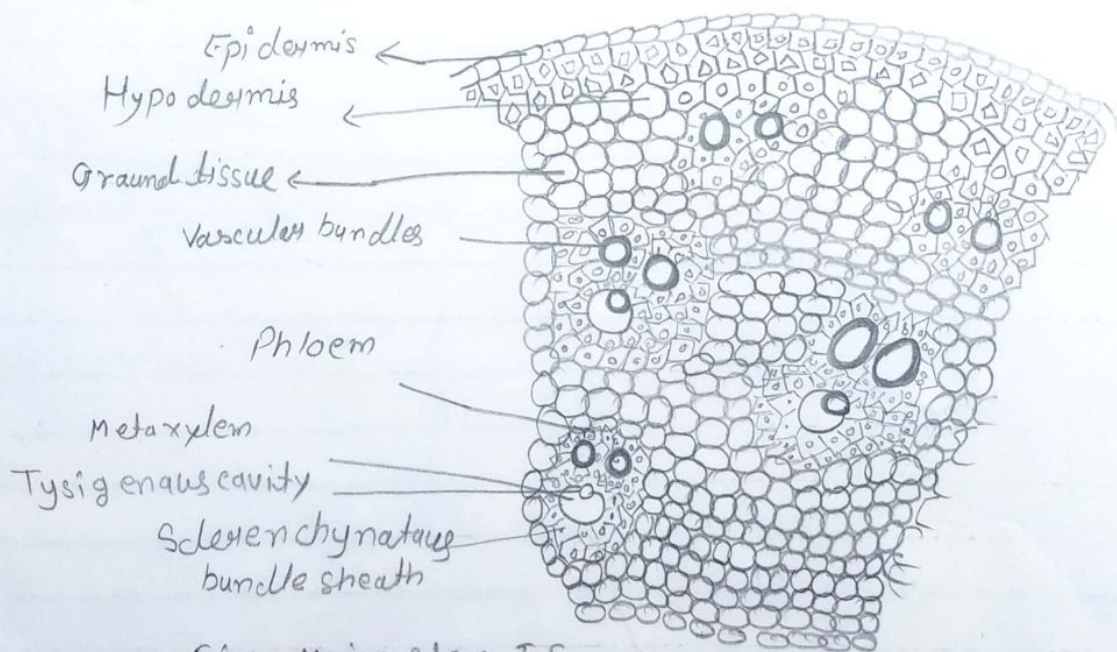 Epidermis
Hypodermis
Graund tissue
Vascular bundles
Phloem
Metaxylem
Tysigenaus cavity
Sclerenchynataus
bundle sheath